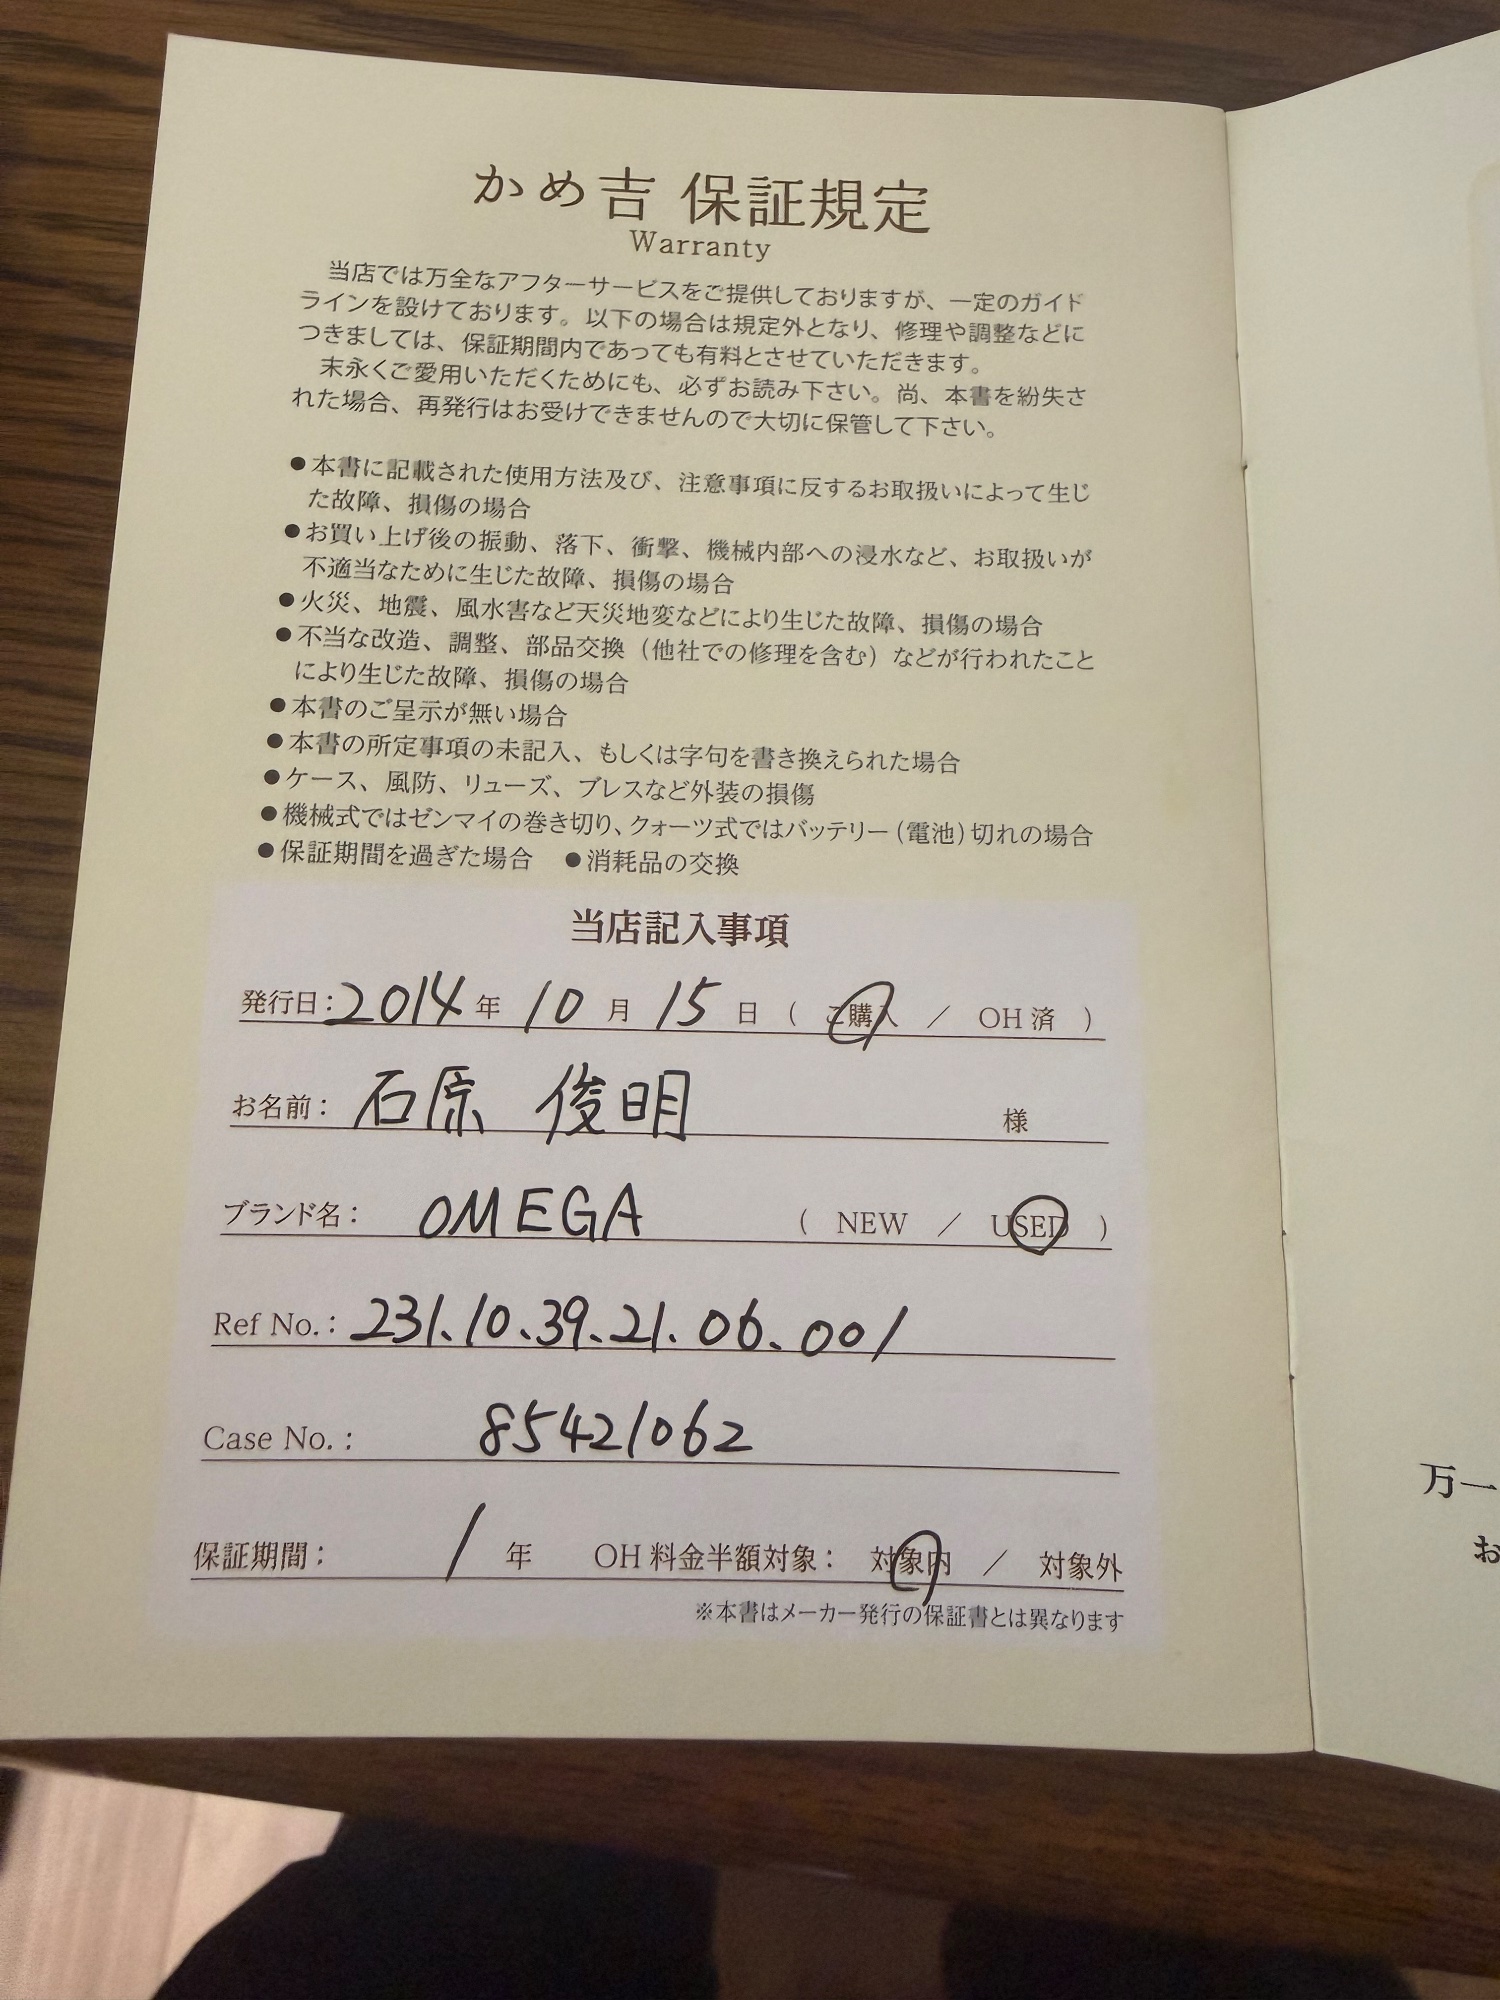 かめ吉 保証規定
Warranty
当店では万全なアフターサービスをご提供しておりますが、一定のガイド
ラインを設けております。以下の場合は規定外となり、修理や調整などに
つきましては、保証期間内であっても有料とさせていただきます。
末永くご愛用いただくためにも、必ずお読み下さい。尚、本書を紛失さ
れた場合、再発行はお受けできませんので大切に保管して下さい。
●本書に記載された使用方法及び、注意事項に反するお取扱いによって生じ
た故障、損傷の場合
●お買い上げ後の振動、落下、衝撃、機械内部への浸水など、お取扱いが
不適当なために生じた故障、損傷の場合
●火災、地震、風水害など天災地変などにより生じた故障、損傷の場合
●不当な改造、調整、部品交換（他社での修理を含む）などが行われたこと
により生じた故障、損傷の場合
●本書のご呈示が無い場合
●本書の所定事項の未記入、もしくは字句を書き換えられた場合
●ケース、風防、リューズ、ブレスなど外装の損傷
●機械式ではゼンマイの巻き切り、クォーツ式ではバッテリー（電池）切れの場合
●保証期間を過ぎた場合 ●消耗品の交換
当店記入事項
発行日：2014 年 10 月 15 日 （ ご購入 ／ OH 済 ）
お名前： 石原 俊明 様
ブランド名： OMEGA （ NEW ／ USED ）
Ref No.：231.10.39.21.06.001
Case No.： 85421062
保証期間： 1 年 OH 料金半額対象： 対象内 ／ 対象外
※本書はメーカー発行の保証書とは異なります
万一
お